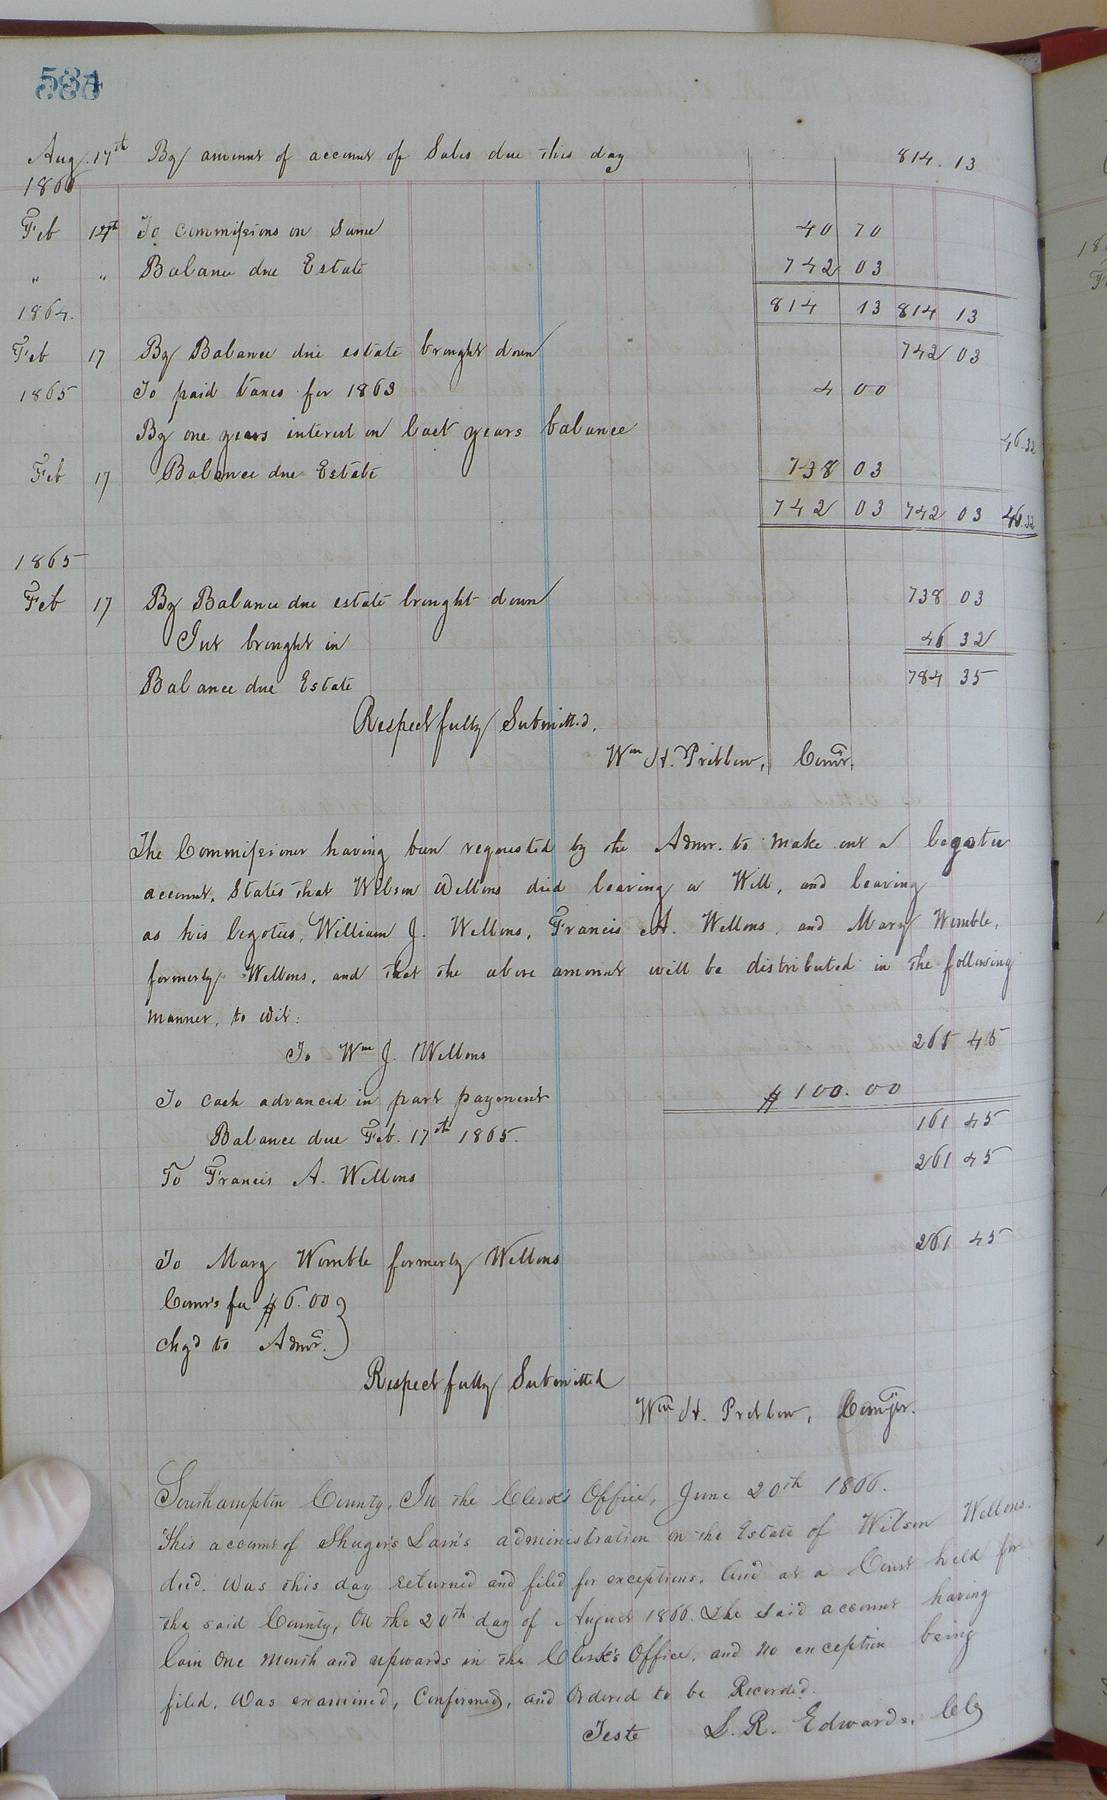 534
Aug. 17th By amount of account of Sales due this day 814. 13
1866
Feb 17th To commissions on Same 40 70
" " Balance due Estate 742 03
1864. 814 13 814 13
Feb 17 By Balance due estate brought down 742 03
1865 To paid taxes for 1863 4 00
By one years interest on last years balance 46.32
Feb 17 Balance due Estate 738 03
742 03 742 03 46.32
1865
Feb 17 By Balance due estate brought down 738 03
Int brought in 46 32
Balance due Estate 784 35
Respectfully Submitted,
Wm H. Pretlow, Comr.
The Commissioner having been requested by the Admr. to make out a legatee
account, States that Wilson Wellons died leaving a Will, and leaving
as his legatees, William J. Wellons, Francis A. Wellons, and Mary Womble,
formerly Wellons, and that the above amount will be distributed in the following
manner, to wit:
To Wm J. Wellons 261 45
To cash advanced in part payment $100.00
Balance due Feb. 17th 1865. 161 45
To Francis A. Wellons 261 45
To Mary Womble formerly Wellons 261 45
Comr's fee $6.00
chgd to Admr.
Respectfully Submitted
Wm H. Pretlow, Comr.
Southampton County, In the Clerk's Office, June 20th 1866.
This account of Shugars Lain's administration on the Estate of Wilson Wellons,
decd. Was this day returned and filed for exceptions. And at a Court held for
the said County, On the 20th day of August 1866. The said account having
lain One Month and upwards in the Clerk's Office, and no exception being
filed, Was examined, Confirmed, and Ordered to be Recorded.
Teste L. R. Edwards, Clk